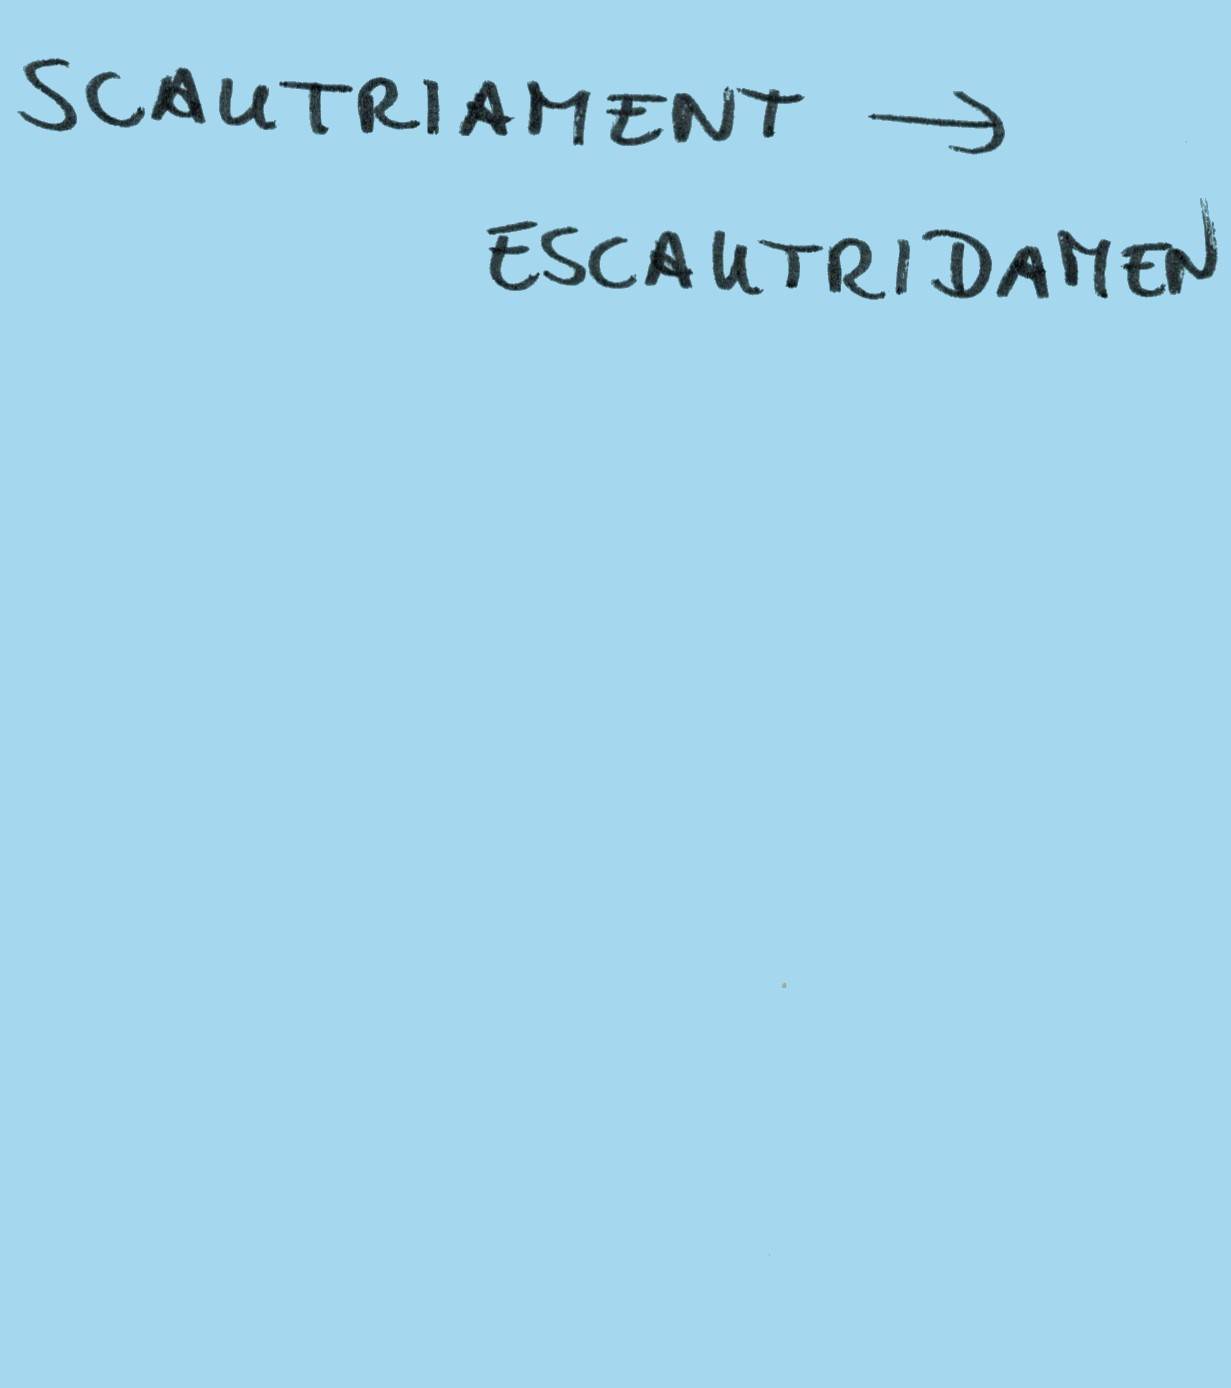 SCAUTRIAMENT →
ESCAUTRIDAMEN